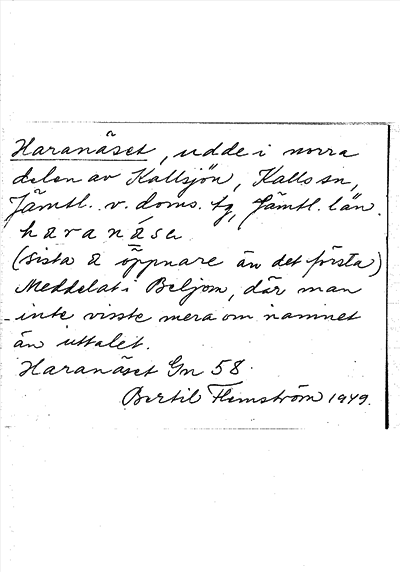 Haranäset, udde i norra
delen av Kallsjön, Kalls sn,
Jämtl. v. doms. tg, Jämtl. län.
haranása
(sista a öppnare än det första)
Meddelat i Beljom, där man
inte visste mera om namnet
än uttalet.
Haranäset Gn 58.
Bertil Flemström 1949.